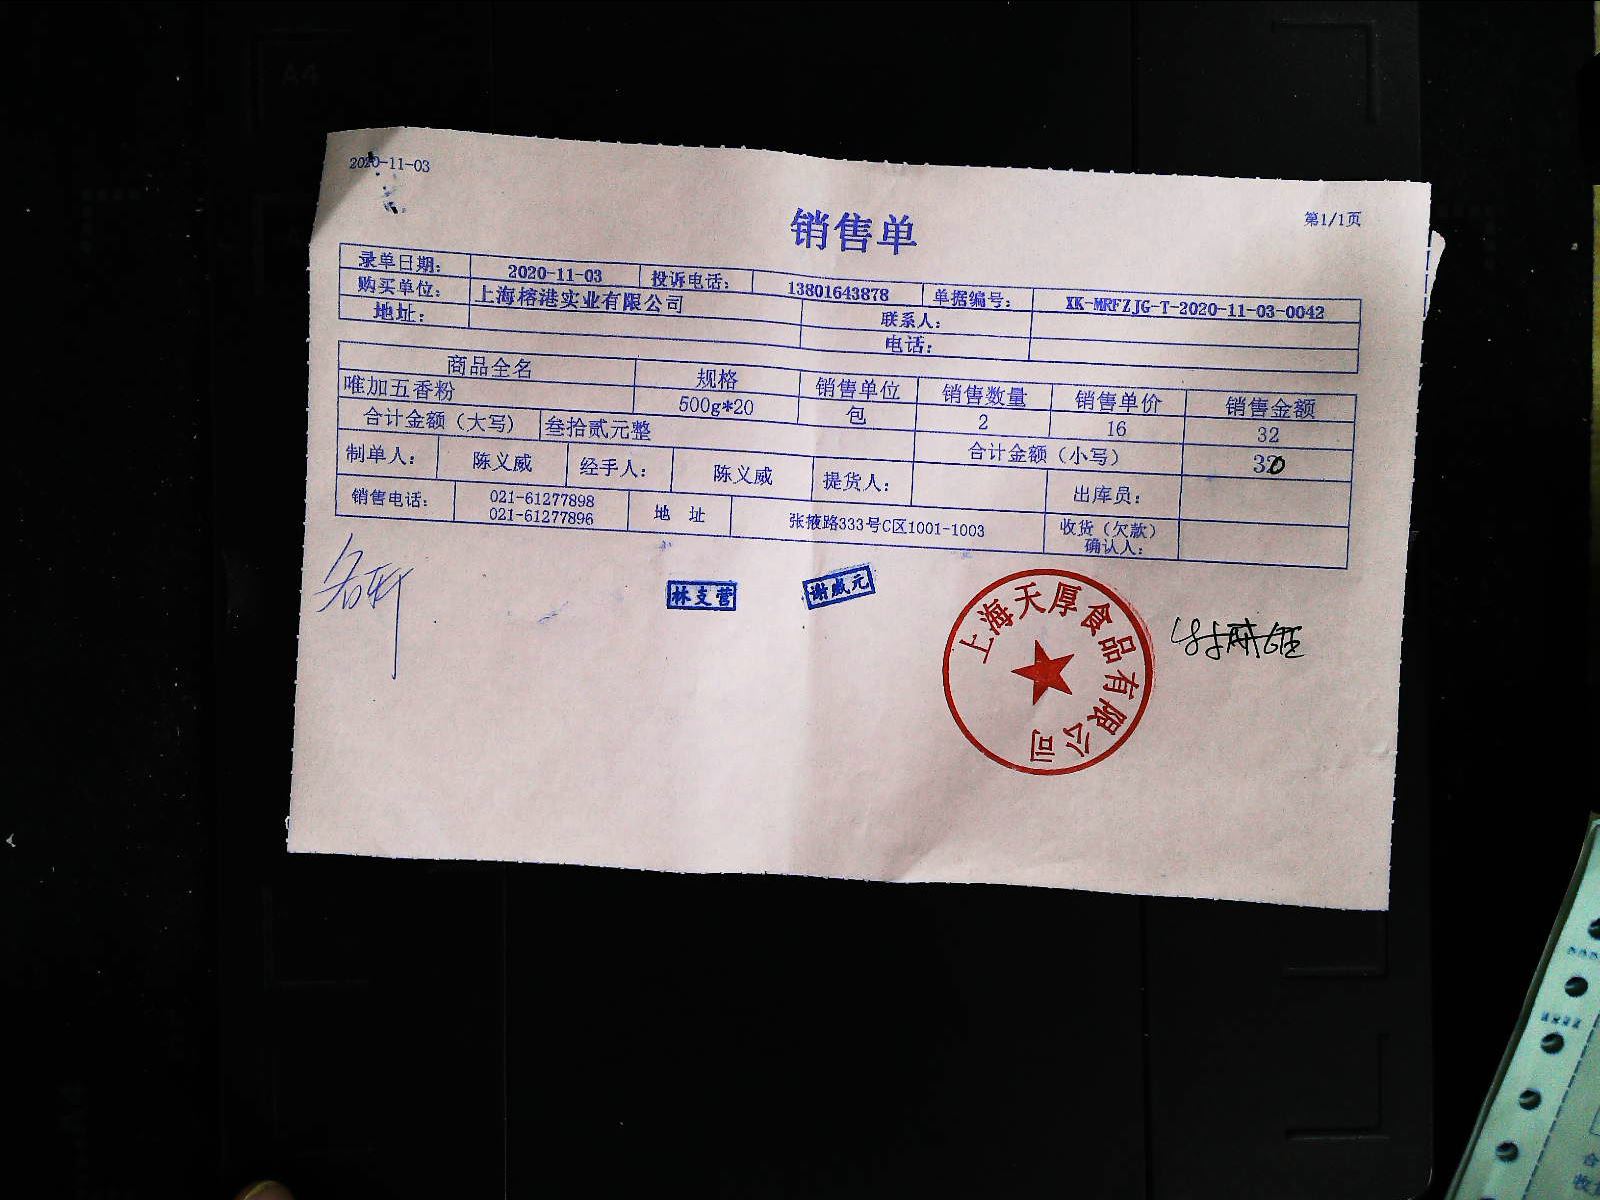 2020-11-03
第1/1页
销售单
录单日期： 2020-11-03 投诉电话： 13801643878 单据编号： XK-MRFZJG-T-2020-11-03-0042
购买单位： 上海榕港实业有限公司 联系人：
地址： 电话：
商品全名 规格 销售单位 销售数量 销售单价 销售金额
唯加五香粉 500g*20 包 2 16 32
合计金额（大写） 叁拾贰元整 合计金额（小写） 30
制单人： 陈义威 经手人： 陈义威 提货人： 出库员：
销售电话： 021-61277898 021-61277896 地 址 张掖路333号C区1001-1003 收货（欠款）确认人：
林支营
谢威元
上海天厚食品有限公司